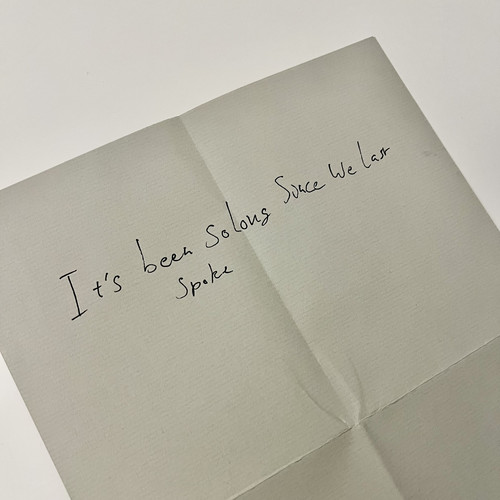 It's been so long Since We last
Spoke